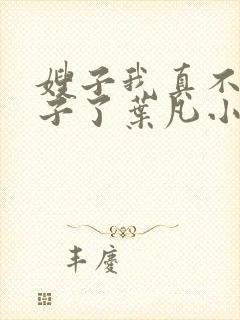 嫂子我真不
子了葉凡小
丰慶